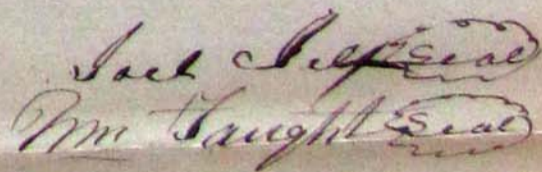 Joel Self Seal
Wm Faught Seal